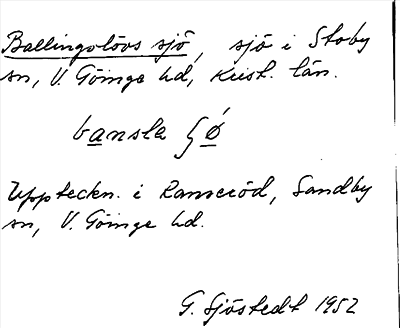 Ballingslövs sjö, sjö i Stoby
sn, V. Göinge hd, Krist. län.
bansla ʃǿ
Uppteckn. i Ramseröd, Sandby
sn, V. Göinge hd.
G. Sjöstedt 1952